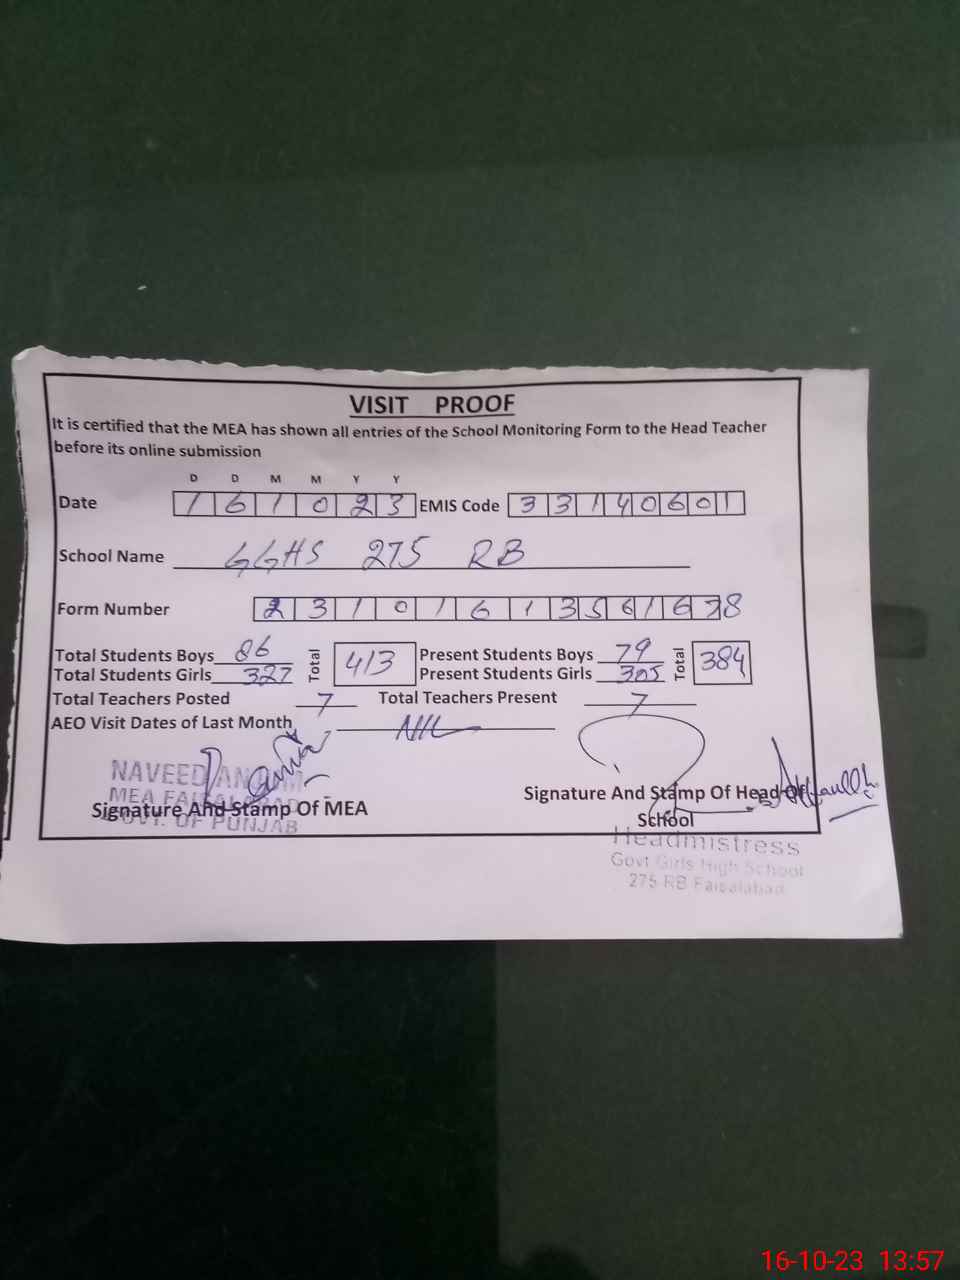 VISIT PROOF
It is certified that the MEA has shown all entries of the School Monitoring Form to the Head Teacher
before its online submission
D D M M Y Y
Date 161023 EMIS Code 33140601
School Name GGHS 275 RB
Form Number
Total Students Boys 86 Total 413 Present Students Boys 79 Total 384
Total Students Girls 327 Present Students Girls 305
Total Teachers Posted 7 Total Teachers Present 7
AEO Visit Dates of Last Month Nil
NAVEED ANJUM
MEA FAISALABAD
GOVT. OF PUNJAB
Signature And Stamp Of MEA
Signature And Stamp Of Head Of
School
Headmistress
Govt Girls High School
275 RB Faisalabad
16-10-23 13:57